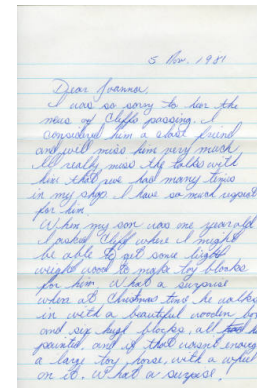 5 Nov. 1987
Dear Joanna,
I was so sorry to hear the
news of Cliffs passing. I
considered him a close friend
and will miss him very much
I'll really miss the talks with
him that we had many times
in my shop. I have so much respect
for him
When my son was one year old
I asked Cliff where I might
be able to get some light
weight wood to make toy blocks
for him. What a surprise
when at Christmas time he walks
in with a beautiful wooden box
and six huge blocks, all
painted, and if that wasn't enough
a large toy horse, with a wheel
on it. What a surprise.